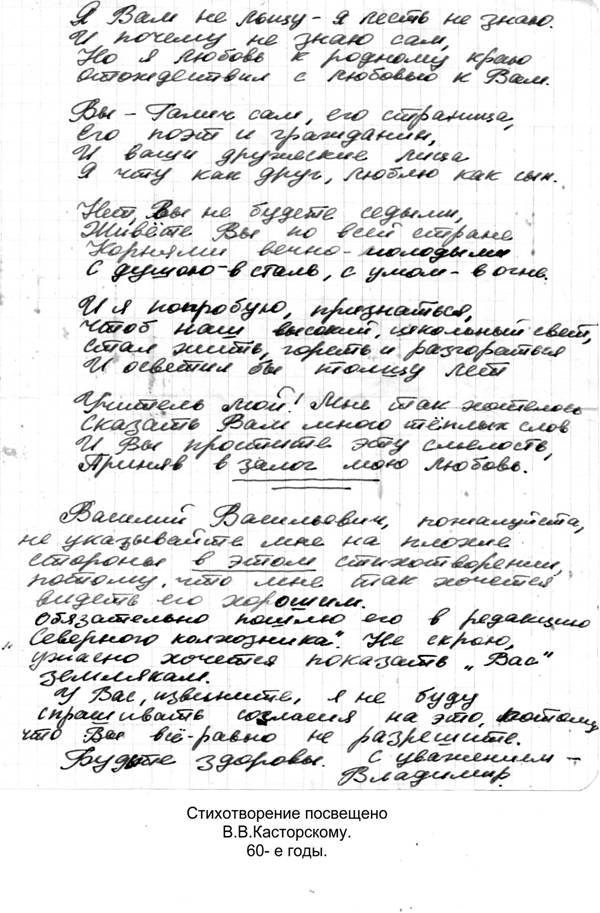 Я Вам не льщу - я лесть не знаю.
И почему не знаю сам,
Но я любовь к родному краю
отождествил с любовью к Вам.
Вы - Галич сам, его страница,
Его поэт и гражданин,
И ваши дружеские лица
Я чту как друг, люблю как сын.
Нет, Вы не будете седыми,
Живёте Вы по всей стране
Корнями вечно-молодыми
С душою-в сталь, с умом-в огне.
И я попробую, признаться,
Чтоб наш высокий, школьный свет,
Стал жить, гореть и разгораться
И осветил бы толщу лет
Учитель мой! Мне так хотелось
Сказать Вам много тёплых слов
И Вы простите эту смелость,
Приняв в залог мою любовь.
Василий Васильевич, пожалуйста,
не указывайте мне на плохие
стороны в этом стихотворении,
потому, что мне так хочется
видеть его хорошим.
Обязательно пошлю его в редакцию
„Северного колхозника". Не скрою,
ужасно хочется показать „Вас"
землякам.
У Вас, извините, я не буду
спрашивать согласия на это, потому
что Вы всё-равно не разрешите.
Будьте здоровы. С уважением -
Владимир.
Стихотворение посвещено
В.В.Касторскому.
60- е годы.